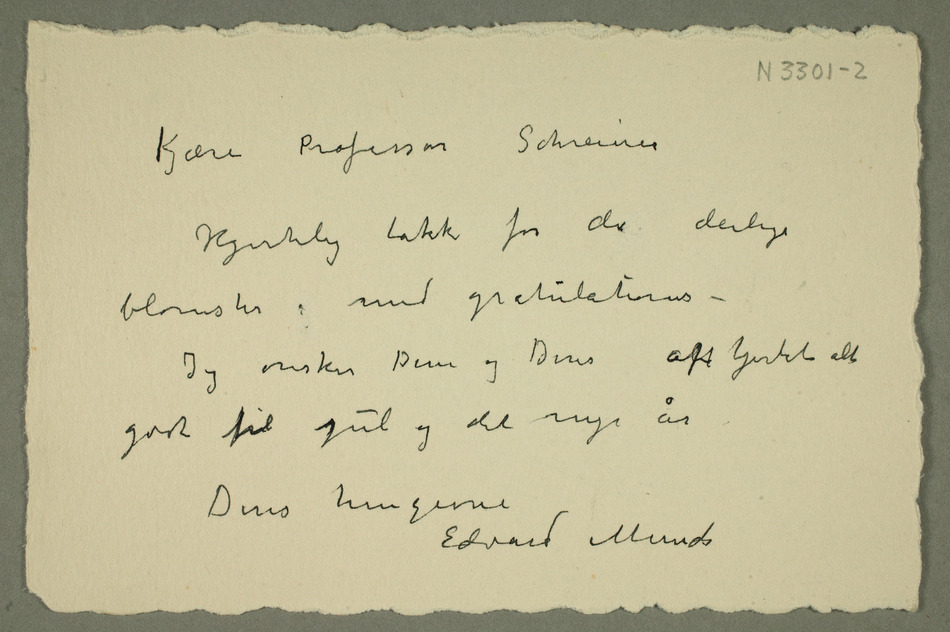 N 3301-2
Kjære Professor Schreiner
Hjertelig takk for de deilige
blomster med gratulations –
Jeg ønsker Dem og Deres af hjertet alt
godt til jul og det nye år
Deres hengivne
Edvard Munch